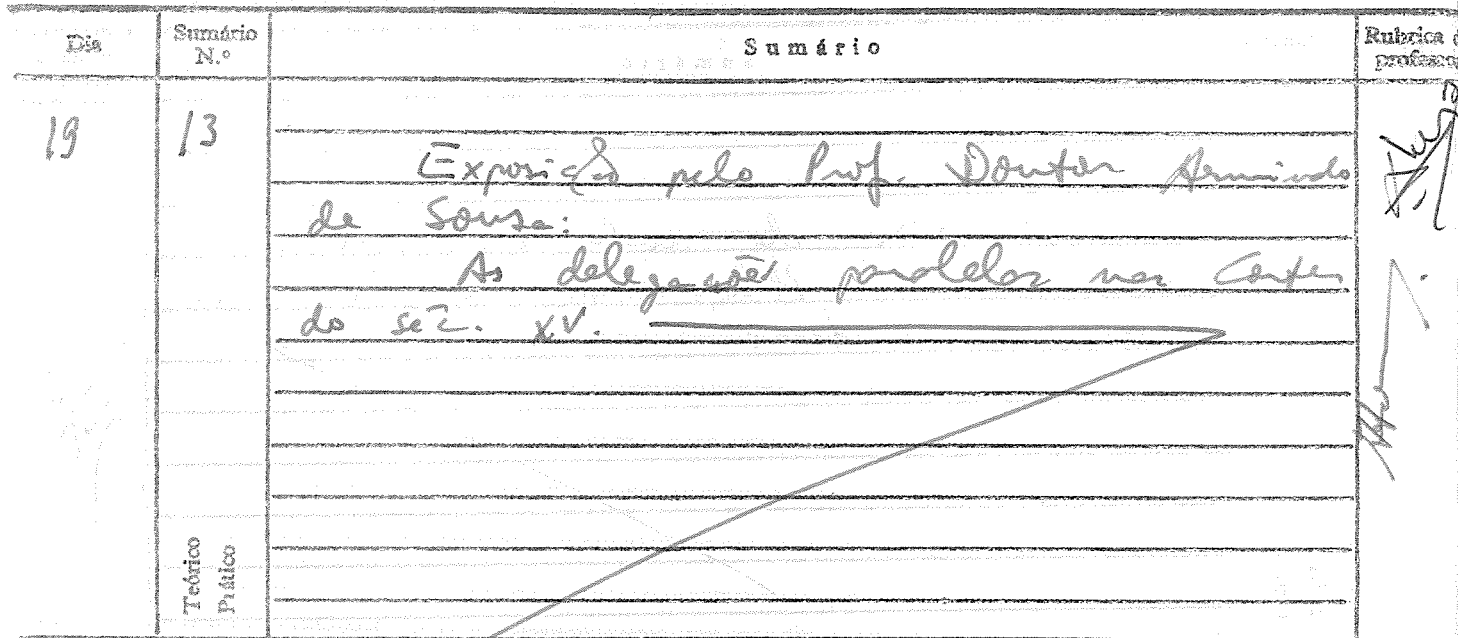 Dia Sumário N.º Sumário Rubrica d professo
19 13
Exposição pelo Prof. Doutor Armindo
de Sousa:
As delegações paralelas nas Cortes
do séc. XV.
Teórico
Prático